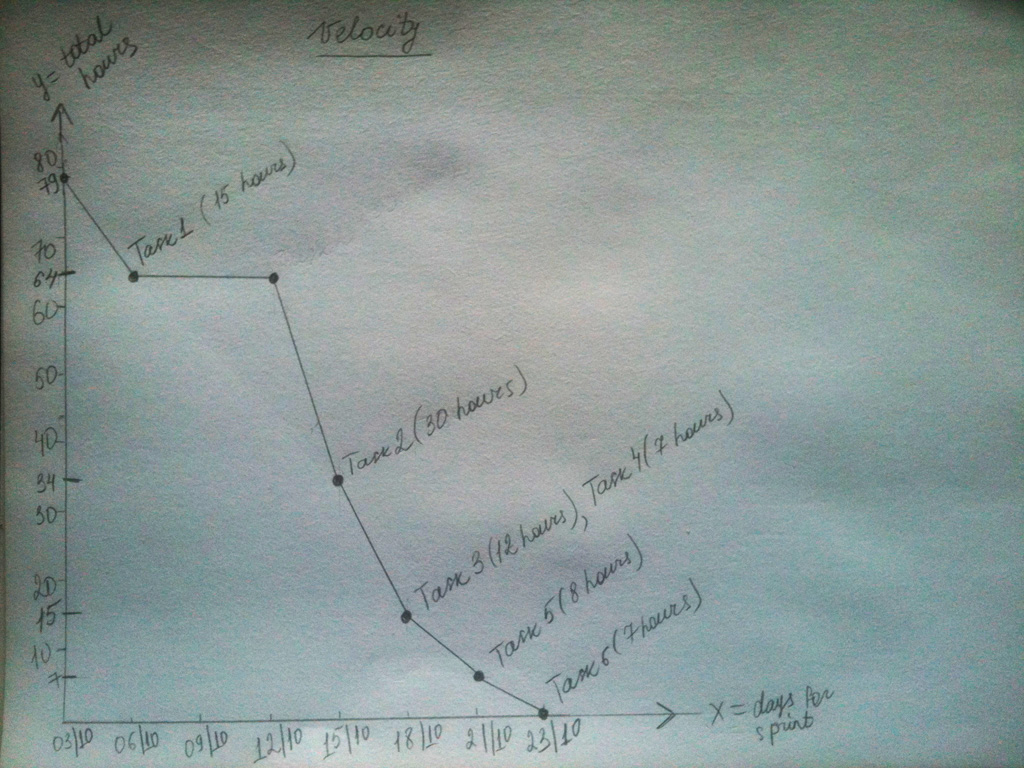 Velocity
y = total
hours
80
79
70
64
60
50
40
34
30
20
15
10
7
Task 1 (15 hours)
Task 2 (30 hours)
Task 3 (12 hours), Task 4 (7 hours)
Task 5 (8 hours)
Task 6 (7 hours)
03/10 06/10 09/10 12/10 15/10 18/10 21/10 23/10
x = days for
sprint